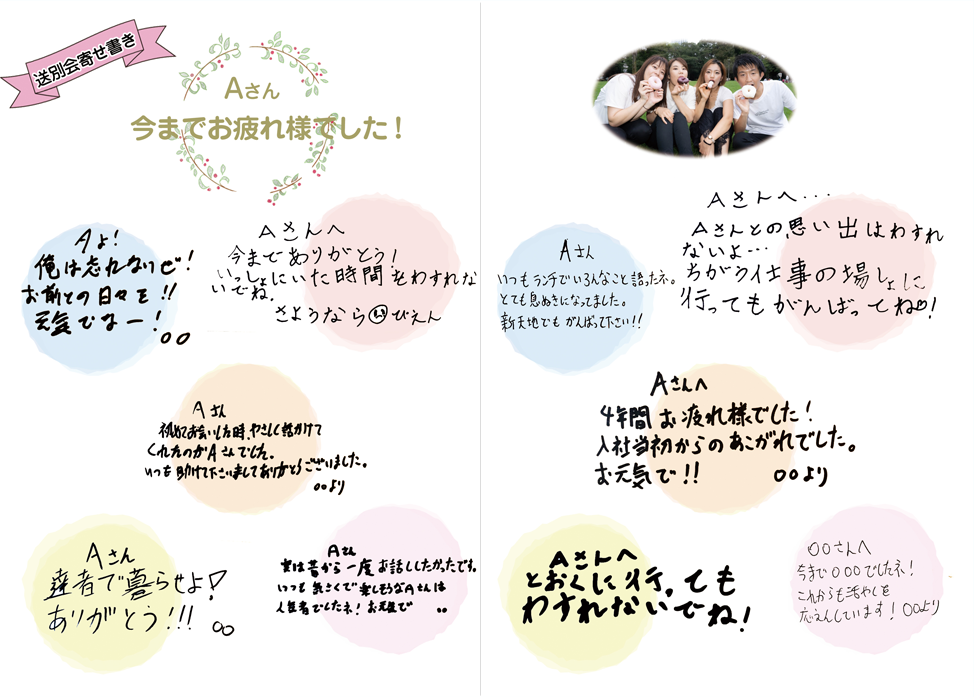 送別会寄せ書き
Aさん
今までお疲れ様でした！
Aよ！
俺は忘れないぜ！
お前との日々を!!
元気でなー！
○○
Aさんへ
今までありがとう！
いっしょにいた時間をわすれな
いでね。
さようなら ぴえん
Aさん
初めてお会いした時、やさしく話かけて
くれたのがAさんでした。
いつも助けて下さいましてありがとうございました。
○○より
Aさん
達者で暮らせよ！
ありがとう!!!
○○
Aさん
実は昔から一度お話ししたかったです。
いつも気さくで楽しそうなAさんは
人気者でしたネ！お元気で
○○
Aさん
いつもランチでいろんなこと語ったネ。
とても息ぬきになってました。
新天地でもがんばって下さい!!
Aさんへ・・・
Aさんとの思い出はわすれ
ないよ・・・
ちがう仕事の場しょに
行ってもがんばってね♡！
Aさんへ
4年間お疲れ様でした！
入社当初からのあこがれでした。
お元気で!!
○○より
Aさんへ
とおくに行っても
わすれないでね！
○○さんへ
今まで○○○でしたネ！
これからも活やくを
応えんしています！○○より